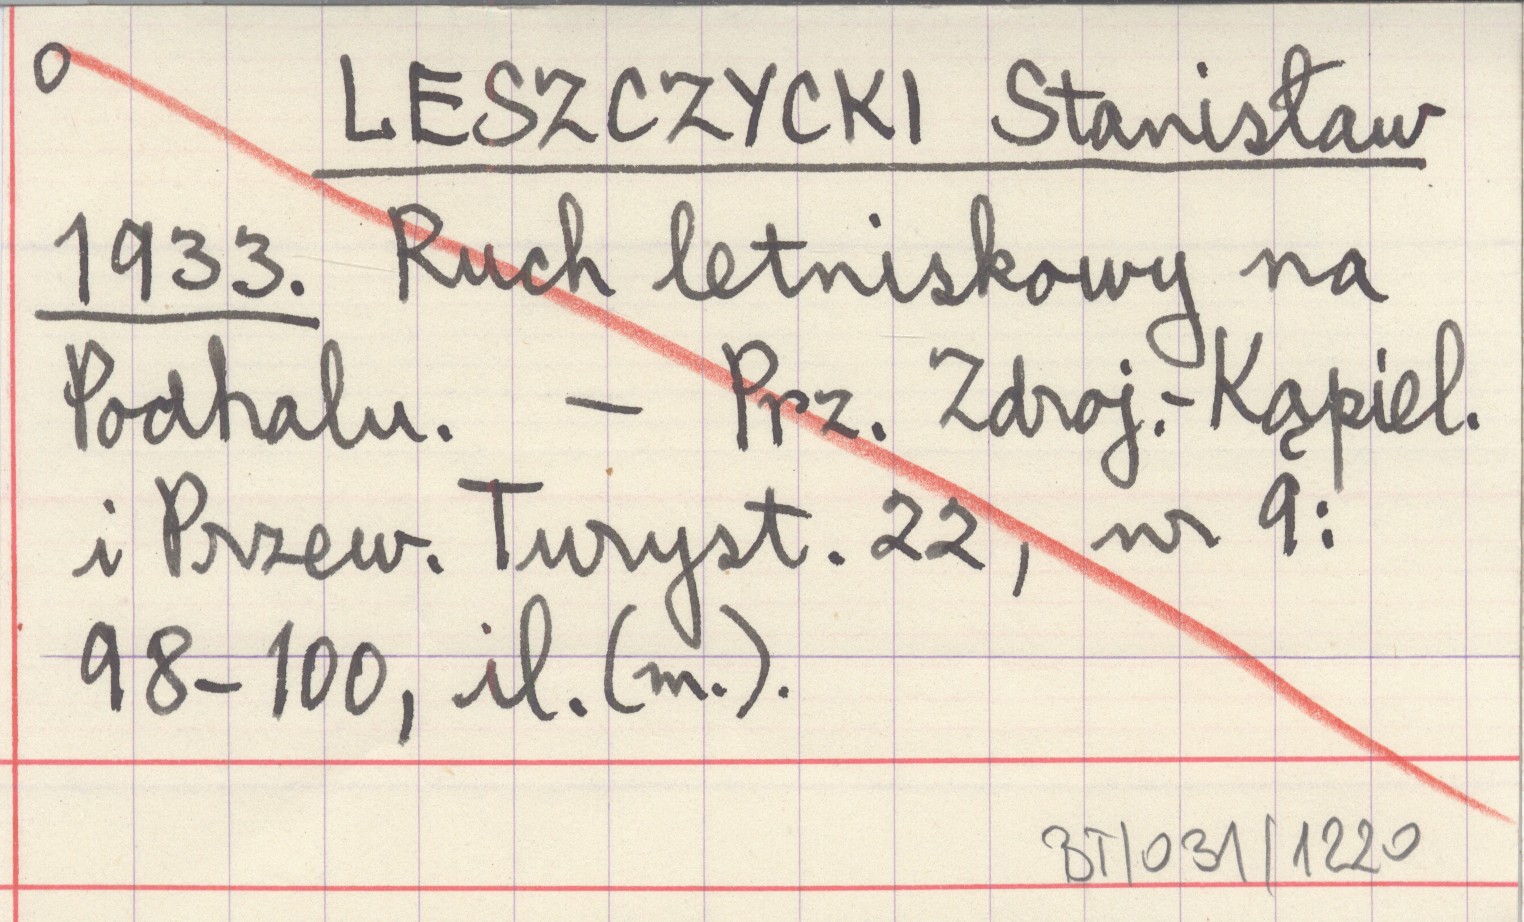 O LESZCZYCKI Stanisław
1933. Ruch letniskowy na
Podhalu. – Prz. Zdroj.-Kąpiel.
i Przew. Turyst. 22, nr 9:
98-100, il. (m.).
BT/031/1220